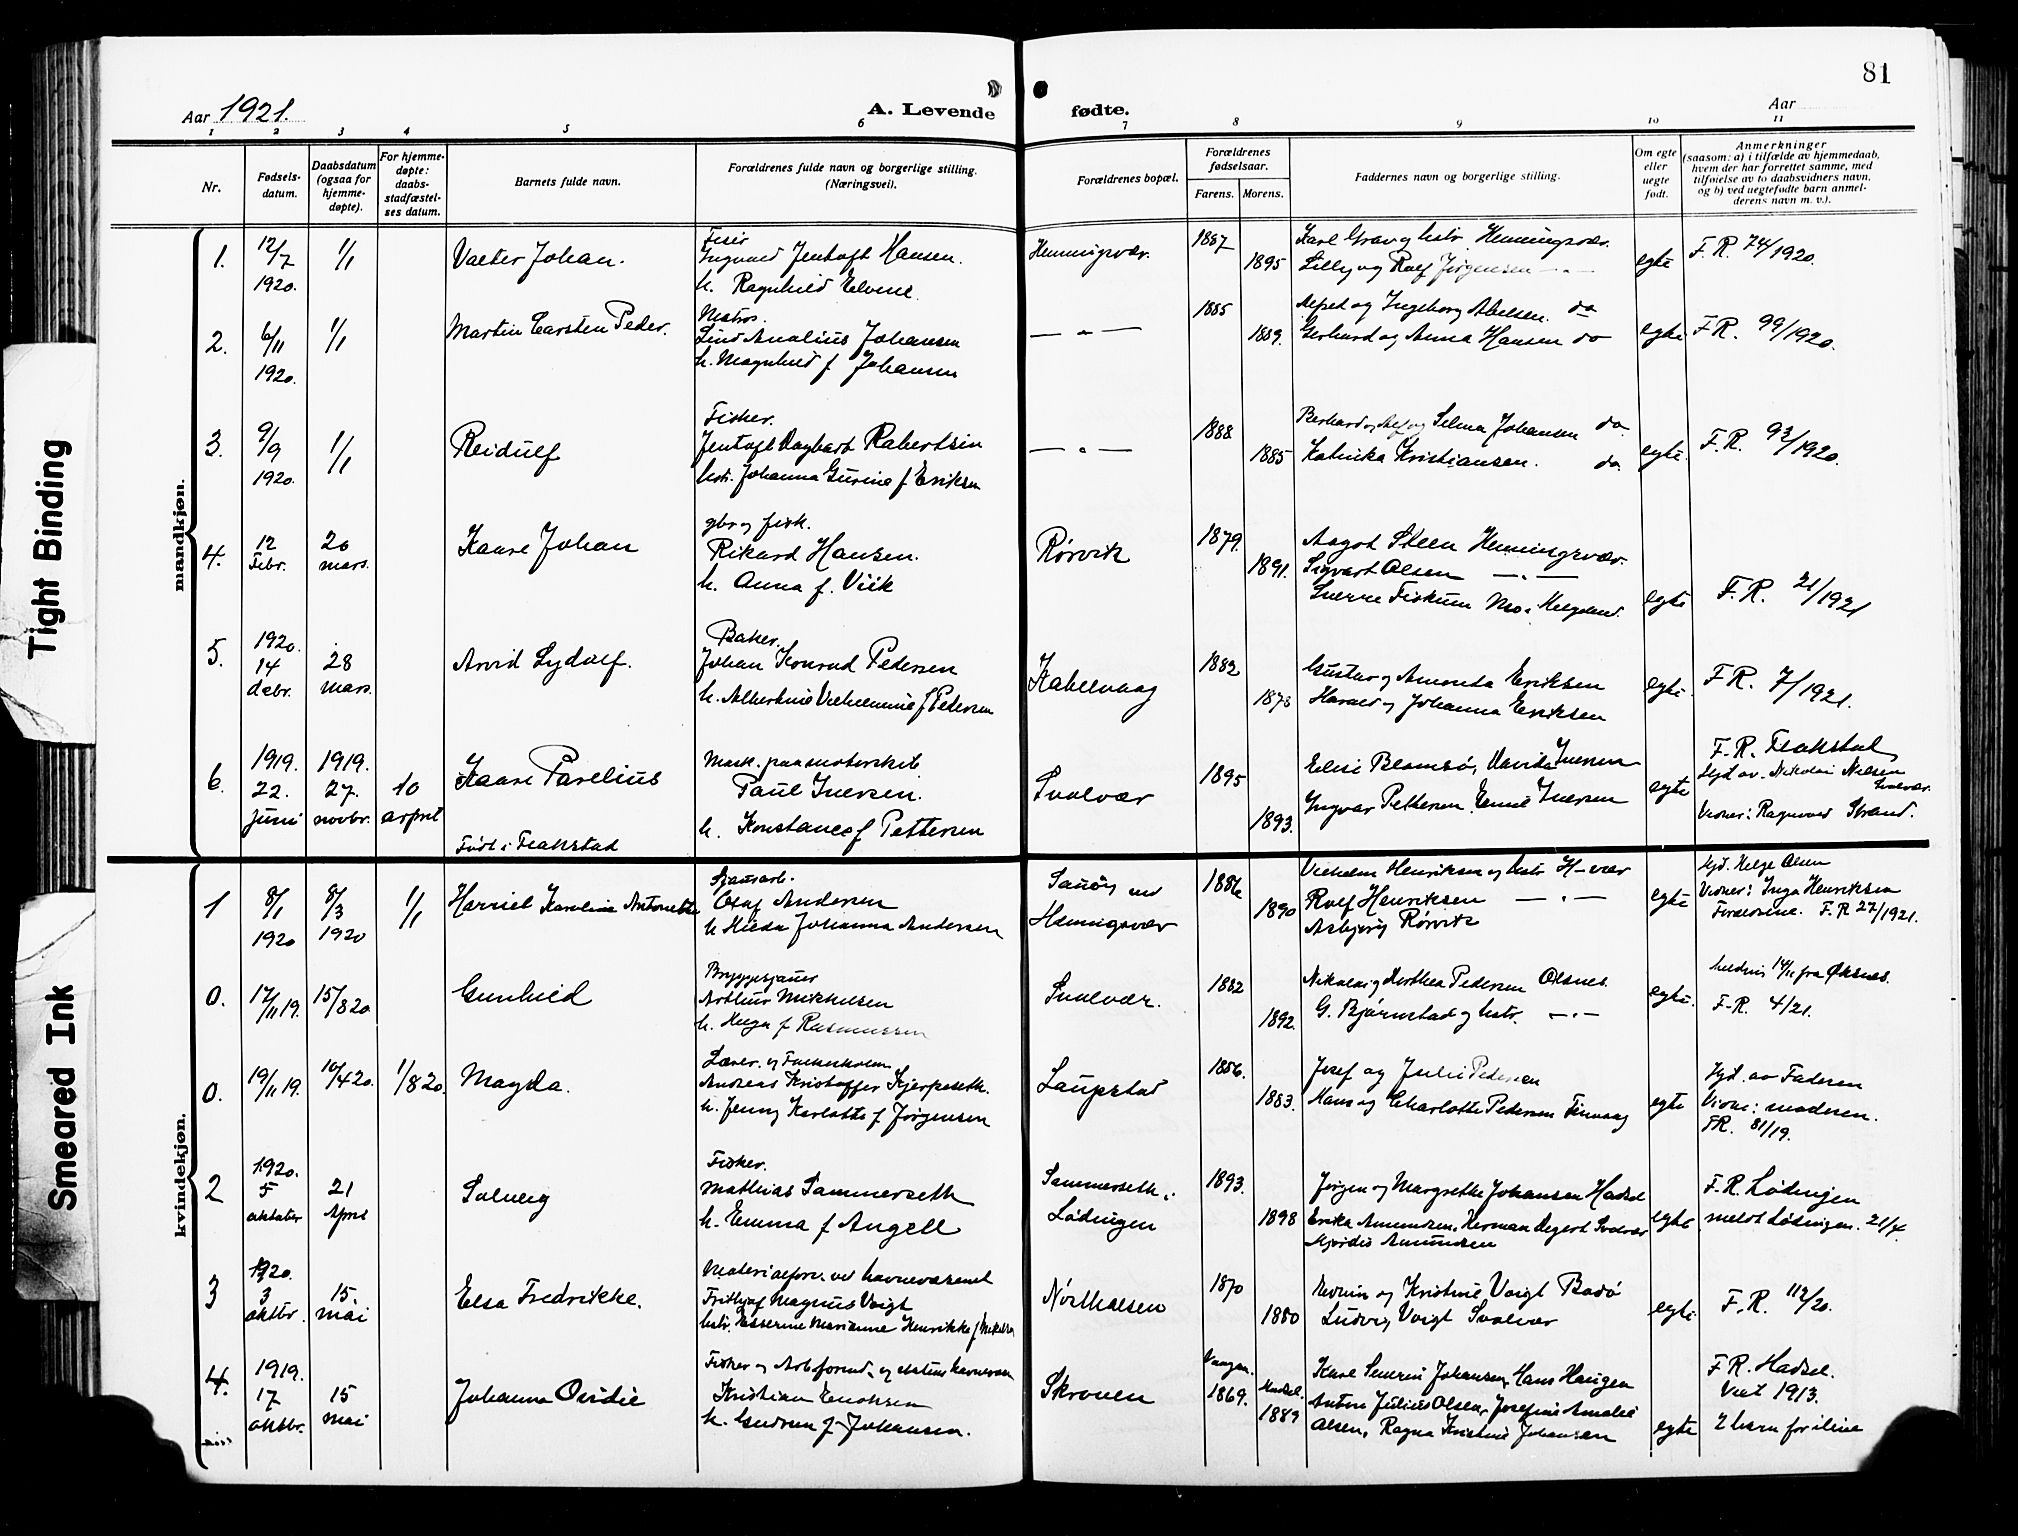 81
Aar 1921.
A. Levende fødte.
Aar
1 2 3 4 5 6 7 8 9 10 11
Nr.
Fødsels-
datum.
Daabsdatum
(ogsaa for
hjemme-
døpte).
For hjemme-
døpte:
daabs-
stadfæstel-
ses datum.
Barnets fulde navn.
Forældrenes fulde navn og borgerlige stilling.
(Næringsvei).
Forældrenes bopæl.
Forældrenes
fødselsaar.
Farens. Morens.
Faddernes navn og borgerlige stilling.
Om egte
eller
uegte
født.
Anmerkninger
(saasom: a) i tilfælde av hjemmedaab,
hvem der har forrettet samme, med
tilføielse av to daabsvidners navn,
og b) ved uegtefødte barn anmel-
derens navn m. v.).
mandkjøn.
1.
12/7
1920.
1/1
Valter Johan.
Ingvald Jentoft Hansen.
h. Ragnhild
Henningsvær.
1887
1895
Karl Grav og hstr. Henningsvær.
Lilly og Rolf Jørgensen — " —
egte
F. R. 74/1920.
2.
6/11
1920.
1/1
Martin Carsten Peder.
Matros.
Johansen
h. Magnhild f Johansen
— " —
1885
1889.
Alfred og Ingeborg Abelsen. do
Gerhard og Anna Hansen do
egte
F.R. 99/1920.
3.
9/9
1920.
1/1
Reidulf
Fisker.
Jentoft Dagbart Robertsen
hstr. Johanna Gurine f Eriksen
— " —
1888
1885
Selma Johansen do.
Katrika Kristiansen. do.
egte.
F.R. 93/1920.
4.
12
Febr.
20
mars.
Kaare Johan
gbr og fisk.
Rikard Hansen.
h. Anna f. Viik
Rørvik
1879.
1891.
Aagot Steen Henningsvær.
Sigvart Olsen — " —
Sverre Fiskum Mo i Helgeland.
egte
F. R. 21/1921
5.
1920.
14
debr.
28
mars.
Arvid Sydolf.
Baker.
Johan Konrad Pedersen
h. Albertine Vilhelmine f Pedersen
Kabelvaag
1882
1878
Gustav og Amanda Eriksen
Harald og Johanna Eriksen
egte
F R. 7/1921.
6.
1919.
22.
juni
1919.
27.
novbr.
10
april
Kaare Parelius
Født i Flakstad
Mask. paa motorskib
Paul Iversen.
h. Konstance f Pettersen
Svolvær
1895
1893.
Elise Blomsø, Davida Iversen
Ingvar Pettersen. Emil Iversen
egte
F. R. Flakstad
Hjd. av. Nikolai Nilsen
Svolvær.
Vidner: Ragnvald Strand.
kvindekjøn.
1
8/1
1920
8/3
1920
1/1
Harriet Karoline Antonette
Sjauarb.
Olaf Andersen
h Hilda Johanna Andersen
Sauøy ved
Henningsvær
1886
1890
Vilhelm Henriksen og hstr H-vær
Rolf Henriksen — " —
Asbjørg Rørvik
egte
Hjd. Helge Olsen
Vidner: Inga Henriksen
Forældrene. F. R 27/1921.
0.
17/11 19.
15/8 20.
Gunhild
Bryggesjauer
Arthur Mikkelsen
h. Helga f Rasmussen
Svolvær.
1882
1892.
Nikolai og Dorthea Pedersen Øksnes
G. Bjørnstad og hstr. — " —
egte.
14/11 fra Øksnes.
F.R. 4/21.
0.
19/11 19.
10/4 20.
1/8 20.
Magda.
Lærer og
Andreas Kristoffer Kjerpeseth.
h. Jenny Karlotte f Jørgensen
Laupstad
1886.
1883.
Josef og Julie Pedersen
Hans og Charlotte Pedersen Finvaag
egte
Hjd. av Faderen
Vidne: moderen.
FR. 81/19.
2
1920.
5
oktober
21
April
Solveig
Fisker.
Mathias Sammerseth
h. Emma f Angell
Sammerseth i
Lødingen
1893.
1898
Jørgen og Margrethe Johansen Hadsel
Erika Amundsen, Herman Degert Svolvær
Hjørdis Amundsen
egte
F. R. Lødingen
meldt Lødingen. 21/4.
3
1920.
3
oktbr.
15.
mai
Elsa Fredrikke.
Materialforv. ved havnevæsenet
Fritjof Magnus Voigt
hstr. Marianne Henrikke f
Nordhalsen
1870
1880
Edvin og Kristine Voigt Bodø
Ludvig Voigt Svolvær
egte
F. R. 112/20.
4.
1919.
17
oktbr.
15
mai
Johanna Ovidie
Kristian Enoksen
h. Gudrun f. Johansen.
Skroven
Vaagan.
1869.
Hadsel.
1889
Karl Severin Johansen, Hans Haugen
Anton Julius Olsen, Josefine Amalie
Olsen, Ragna Kristine Johansen
egte
F R. Hadsel.
Viet 1913.
2 barn før ilive
Tight Binding
Smeared Ink